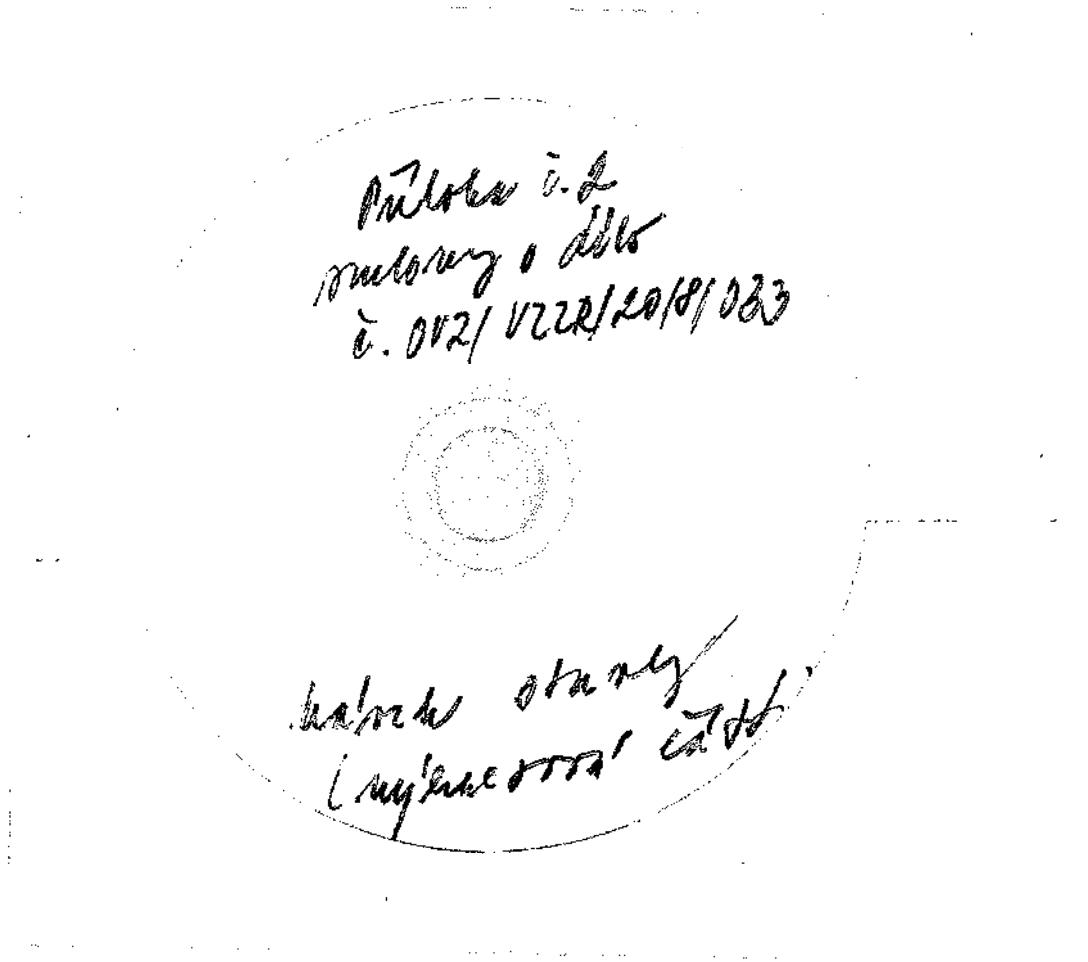 Příloha č. 2
smlouvy o dílo
č. OVZ/VZZR/2018/033
název stavby
(výkresová část)